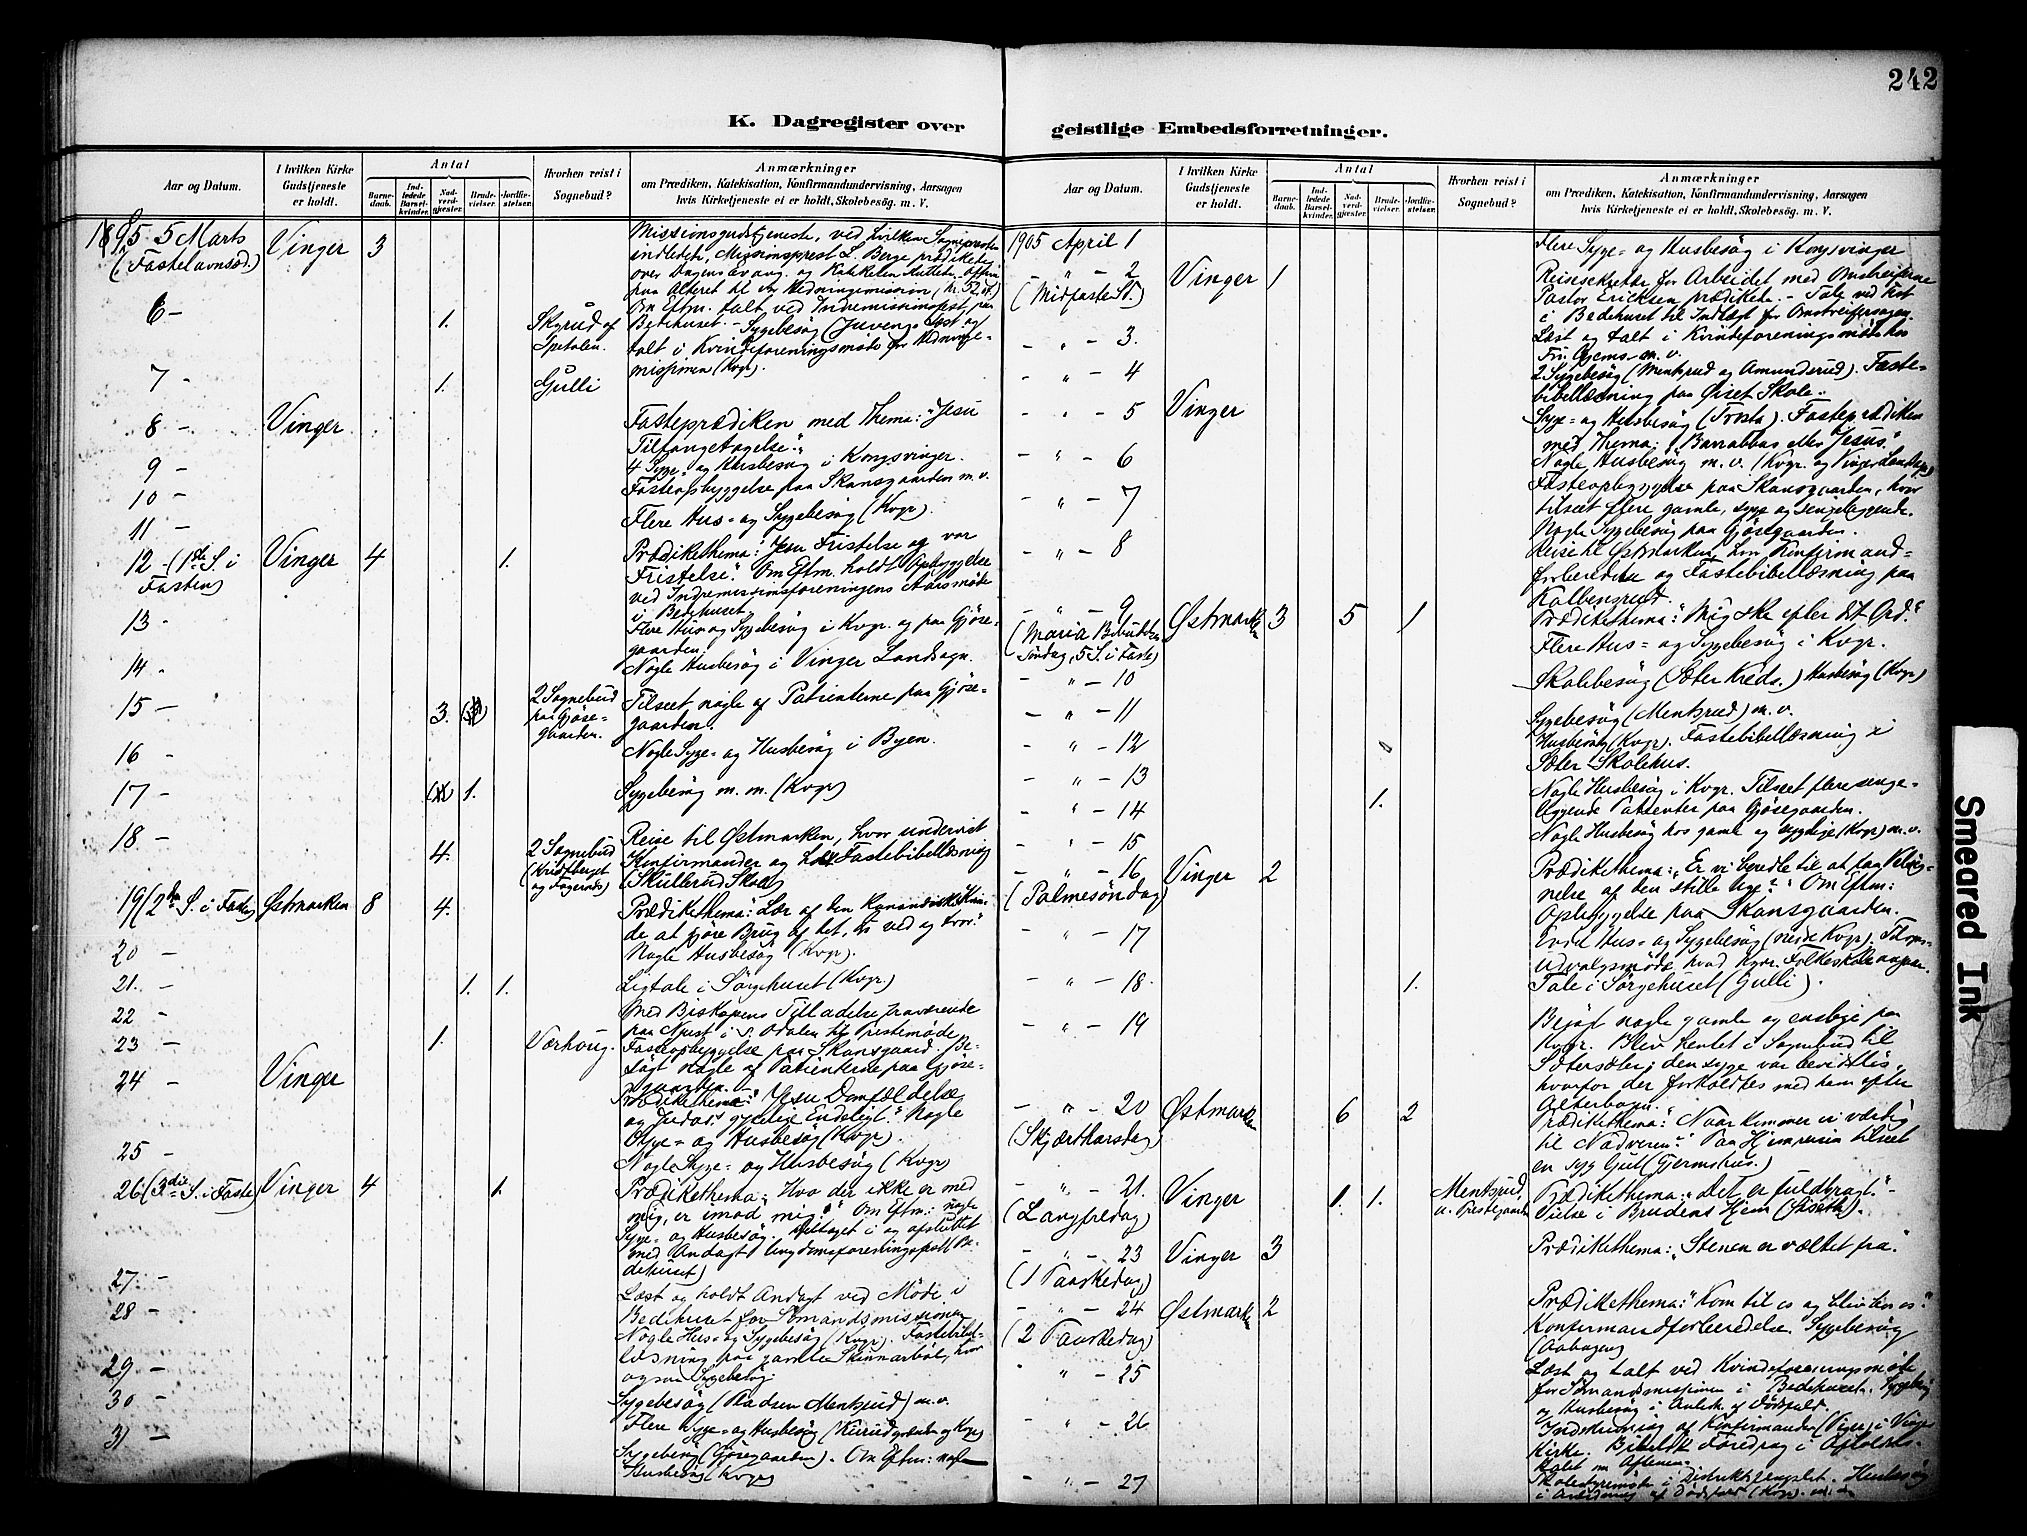 242
K. Dagregister over
geistlige Embedsforretninger.
Aar og Datum.
I hvilken Kirke
Gudstjeneste
er holdt.
Antal
Barne-
daab.
Ind-
ledede
Barsel-
kvinder.
Nad-
verd-
gjester.
Brude-
vielser.
Jordfæ-
stelser.
Hvorhen reist i
Sognebud?
Anmærkninger
om Prædiken, Katekisation, Konfirmandundervisning, Aarsagen
hvis Kirketjeneste ei er holdt, Skolebesøg. m. V.
1905 5 Marts
(Fastelavnsd.)
Vinger 3
Missionsgudstjeneste, ved hvilken Sognepresten
indledet, Missionsprest L. Berge prædikede
over Dagens Evang.
6 –
1.
Skyrud af
Spetalen.
Bedehuset. – Sygebesøg
talt i Kvindeforeningsmøde for Hedninge-
missionen (Kvgr).
7 –
1.
Gulli
8 –
Vinger
Fasteprædiken med Thema: "Jesu
Tilfangetagelse".
9 –
4 Syge- og Husbesøg i Kongsvinger.
10 –
Fasteopbyggelse paa Skansgaarden m. v.
11 –
Flere Hus- og Sygebesøg (Kvgr).
12 – (1ste S. i
Fasten)
Vinger 4 1.
Prædikethema: "Jesu Fristelse og vor
Fristelse". Om Eftm. holdt Opbyggelse
ved Indremissionsforeningens Aarsmøde
i Bedehuset
13 –
Flere Hus og Sygebesøg i Kvgr. og paa Gjøse-
gaarden.
14 –
Nogle Husbesøg i Vinger Landsogn.
15 –
3.
2 Sognebud
paa Gjøse-
gaarden.
Tilseet nogle af Patienterne paa Gjøse-
gaarden.
16 –
Nogle Syge- og Husbesøg i Byen.
17 –
1.
Sygebesøg m. m. (Kvgr)
18 –
4.
2 Sognebud
Reise til Østmarken, hvor undervist
Konfirmander og Fastebibellæsning
(Skullerud Skole)
19 (2den S. i Fasten)
Østmarken 8 4.
Prædikethema: "Lær af den kananæiske Kvin-
de at gjøre Brug af det, vi ved og tror."
20 –
Nogle Husbesøg (Kvgr).
21 –
1. 1.
Ligtale i Sørgehuset (Kvgr)
22 –
Med Biskopens Tilladelse fraværende
paa i S. Odalen til Prestemøde
23 –
1.
Værhoug.
Fasteopbyggelse paa Skansgaard. Be-
søgt nogle af Patienterne paa Gjøse-
gaarden.
24 –
Vinger
Prædikethema: "Jesu Domfældelse
og Judas' Endeligt." Nogle
Syge- og Husbesøg (Kvgr).
25 –
Nogle Syge- og Husbesøg (Kvgr)
26 (3die S. i Faste)
Vinger 4 1.
Prædikethema: "Hvo der ikke er med
mig, er imod mig." Om Eftm: nogle
Syge- og Husbesøg. Deltaget i og afsluttet
med Andagt Ungdomsforeningsfest (Be-
dehuset)
27 –
Læst og holdt Andagt ved Møde i
28 –
Bedehuset for Sømandsmissionen
Nogle Hus- og Sygebesøg (Kvgr). Fastebibel-
læsning paa gamle Skinnarbøl, hvor
29 –
ogsaa Sygebesøg.
30 –
Sygebesøg (Pladsen Menkrud) m. v.
Flere Syge- og Husbesøg
31 –
Sygebesøg (Gjøsegaarden). Om Eftm: nogle
Husbesøg (Kvgr)
Aar og Datum.
I hvilken Kirke
Gudstjeneste
er holdt.
Antal
Barne-
daab.
Ind-
ledede
Barsel-
kvinder.
Nad-
verd-
gjester.
Brude-
vielser.
Jordfæ-
stelser.
Hvorhen reist i
Sognebud?
Anmærkninger
om Prædiken, Katekisation, Konfirmandundervisning, Aarsagen
hvis Kirketjeneste ei er holdt, Skolebesøg. m. V.
1905 April 1
Flere Syge- og Husbesøg i Kongsvinger
– " – 2
(Midfaste S.)
Vinger 1
Reisesekretær for Arbeidet med Omstreiferne
Pastor Ericksen prædikede. – Tale ved Fest
i Bedehuset til Indtægt for Omstreifersagen.
– " – 3.
Læst og talt i Kvindeforeningsmøde hos
Fru Gjems m. v.
– " – 4
2 Sygebesøg (Menkrud og Amunderud). Faste-
bibellæsning paa Øiset Skole.
– " – 5
Vinger
Syge- og Husbesøg (Frosta). Fasteprædiken
med Thema: "Barrabbas eller Jesus".
– " – 6
Nogle Husbesøg m. v. (Kvgr. og Vinger Landsogn)
– " – 7
Fasteopbyggelse paa Skansgaarden, hvor
tilseet flere gamle, syge og sengeliggende.
Nogle Sygebesøg paa Gjøsegaarden.
– " – 8
Reise til Østmarken, hvor Konfirmand-
forberedelse og Fastebibellæsning paa
Kalbensrud.
– " – 9
(Maria Bebudelses
Søndag, 5 S. i Faste)
Østmarken 3 5 1
Prædikethema: "Mig ske efter dit Ord."
Flere Hus- og Sygebesøg i Kvgr.
– " – 10
Skolebesøg (Sæter Kreds.) Husbesøg (Kvgr)
– " – 11
Sygebesøg (Menkrud) m. v.
– " – 12
Husbesøg (Kvgr). Fastebibellæsning i
Sæter Skolehus.
– " – 13
Nogle Husbesøg i Kvgr. Tilseet flere senge-
liggende Patienter paa Gjøsegaarden.
– " – 14
1.
Nogle Husbesøg hos gamle og sygelige (Kvgr) m. v.
– " – 15
– " – 16
(Palmesøndag)
Vinger 2
Prædikethema: "Er vi beredte til at faa Velsig-
nelse af den stille Uge?" Om Eftm:
Opbyggelse paa Skansgaarden.
– " – 17
Hus- og Sygebesøg (nedre Kvgr). Tilsyns-
udvalgsmøde hvad Kgvr. Folkeskole angaar.
– " – 18.
1.
Tale i Sørgehuset (Gulli).
– " – 19
Besøgt nogle gamle og enslige paa
Kvgr. Blev hentet i Sognebud til
Sætersæter; den syge var bevidstløs,
hvorfor der forholdtes med ham efter
Alterbogen.
– " – 20
(Skjærthorsdag)
Østmarken 6 2
Prædikethema: "Naar kommer vi værdig
til Nadveren?" Paa Hjemreisen tilseet
en syg Gut (Gjermshus.)
– " – 21.
(Langfredag)
Vinger 1. 1.
Menkrud,
u. Prestegaarden
Prædikethema: "Det er fuldbragt." –
Vielse i Brudens Hjem
– " – 23
(1 Paaskedag)
Vinger 3
Prædikethema: "Stenen er væltet fra."
– " – 24
(2 Paaskedag)
Østmarken 2
Prædikethema: "Kom til os og bliv hos os."
Konfirmandforberedelse. Sygebesøg
(Aabogen)
" – 25
Læst og talt ved Kvindeforeningsmøde
for Sømandsmissionen i Bedehuset. Sygebesøg
og Husbesøg i Anledn. af Dødsfald.
– " – 26
Indskrivning af Konfirmander (Vinger) i Vinger
Kirke. Bibelsk Foredrag i Afholds-
lokalet om Aftenen.
– " – 27
Skolestyremøde i Distriktsfængslet. Husbesøg
i Anledning af Dødsfald (Kvgr) m. v.
Smeared Ink